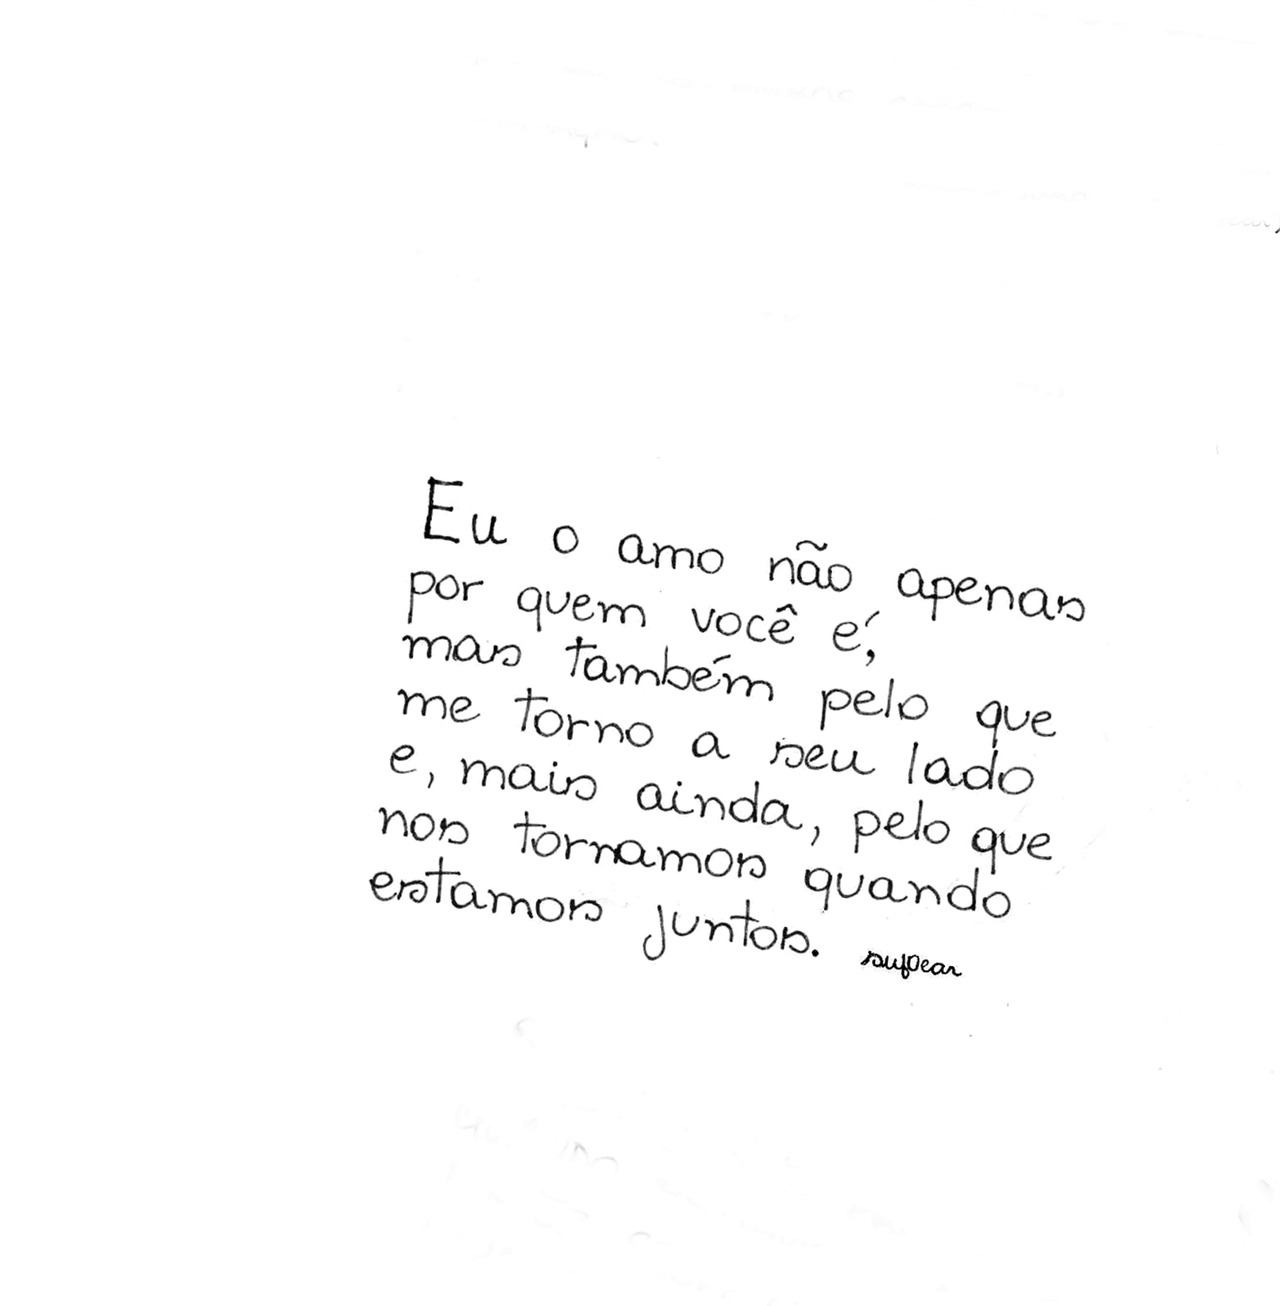 Eu o amo não apenas
por quem você é,
mas também pelo que
me torno a seu lado
e, mais ainda, pelo que
nos tornamos quando
estamos juntos.